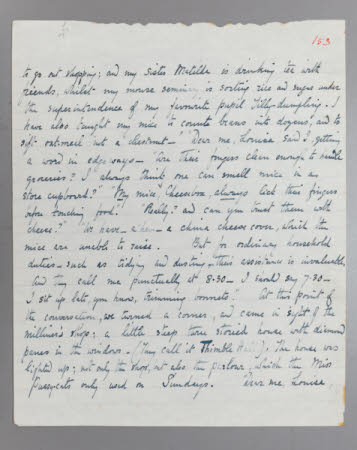 153
to go out shopping; and my sister Matilda is drinking tea with
friends, whilst my mouse seminary is sorting rice and sugar under
the superintendence of my favourite pupil Tilly-dumpling. I
have also taught my mice to count beans into dozens, and to
sift oatmeal into a chestnut – "Dear me, Louisa said I, getting
a word in edge ways – "Are their fingers clean enough to handle
groceries? I always think one can smell mice in an
store cupboard?" "My mice, Cheesebox, always lick their fingers
before touching food." "Really? and can you trust them with
cheese?" "We have – a hem – a china cheese cover, which the
mice are unable to raise. But for ordinary household
duties – such as tidying and dusting, their assistance is invaluable,
And they call me punctually at 8:30 – I should say 7:30 –
I sit up late, you know, trimming bonnets." At this point of
the conversation, we turned a corner, and came in sight of the
milliner's shop; a little steep three storied house with diamond
panes in the windows. (They call it Thimble Hall). The house was
lighted up; not only the shop, but also the parlour, which the Miss
Pussycats only used on Sundays. "Dear me, Louisa,